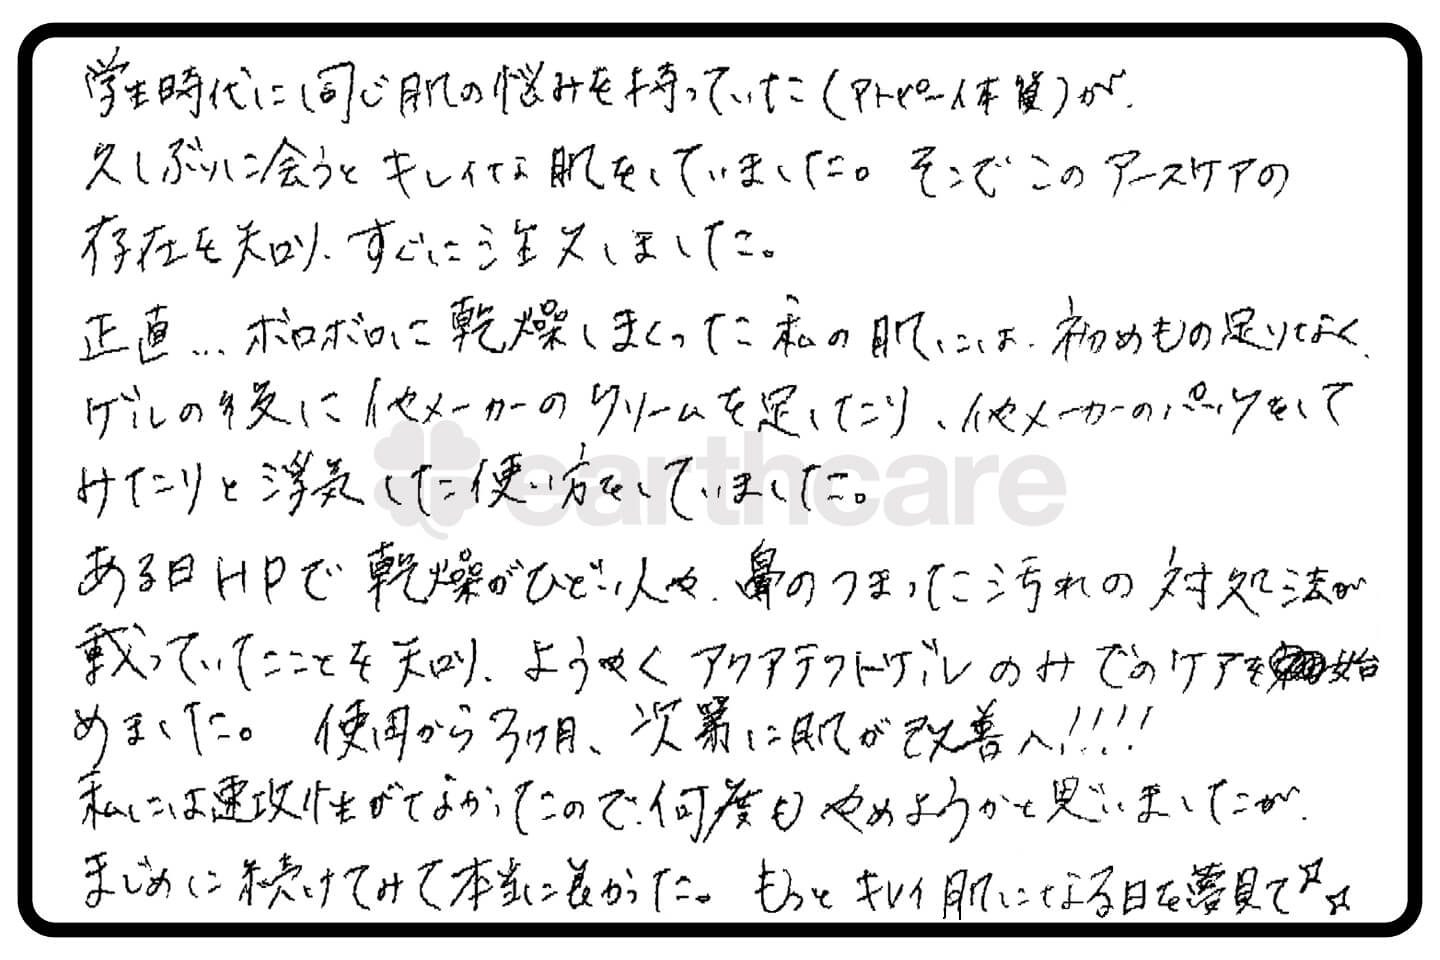 学生時代に同じ肌の悩みを持っていた(アトピー体質)が、
久しぶりに会うとキレイな肌をしていました。そこでこのアースケアの
存在を知り、すぐに注文しました。
正直…ボロボロに乾燥しまくった私の肌には、初めもの足りなく、
ゲルの後に他メーカーのクリームを足したり、他メーカーのパックをして
みたりと浮気した使い方をしていました。
earthcare
ある日HPで乾燥がひどい人や、鼻のつまった汚れの対処法が
載っていたことを知り、ようやくアクアテクトゲルのみでのケアを始
めました。使用から3ヶ月、次第に肌が改善へ!!!!
私には速攻性がなかったので、何度もやめようかと思いましたが、
まじめに続けてみて本当に良かった。もっとキレイ肌になる日を夢見て☆☆